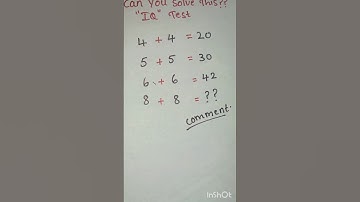 Can You Solve This??
"IQ" Test
4 + 4 = 20
5 + 5 = 30
6 + 6 = 42
8 + 8 = ??
comment.
InShOt